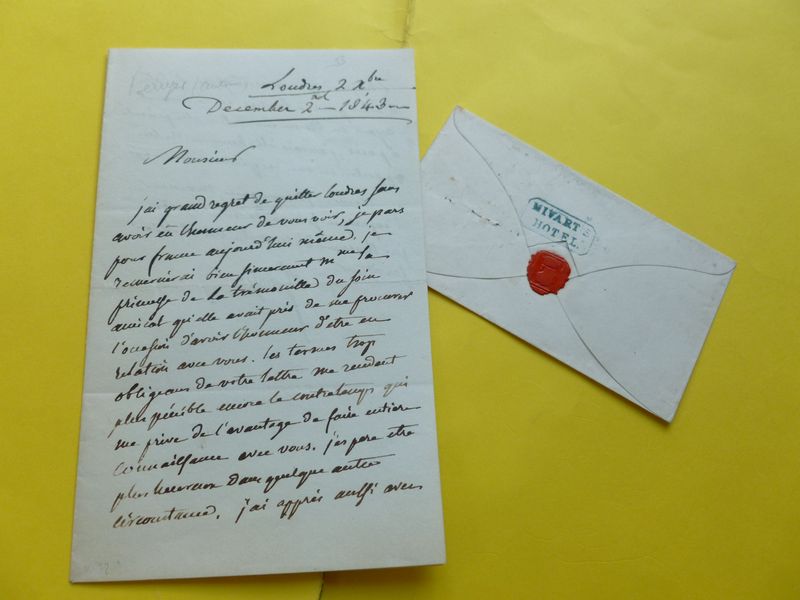 Londres 2 Xbre
December 2nd 1843
Monsieur
j'ai grand regret de quitter londres sans
avoir eu l'honneur de vous voir, je pars
pour aujourd'hui même. je
remercierai bien sincerement Mme la
princesse de La trémouille du soin
amical qu'elle avait pris de me procurer
l'occasion d'avoir l'honneur d'etre en
relation avec vous. les termes trop
obligeans de votre lettre me rendent
plus pénible encore le contretemps qui
me prive de l'avantage de faire entiere
connaissance avec vous. j'espere etre
plus heureux dans quelque autre
circonstance. j'ai appris aussi avec
MIVART
HOTEL